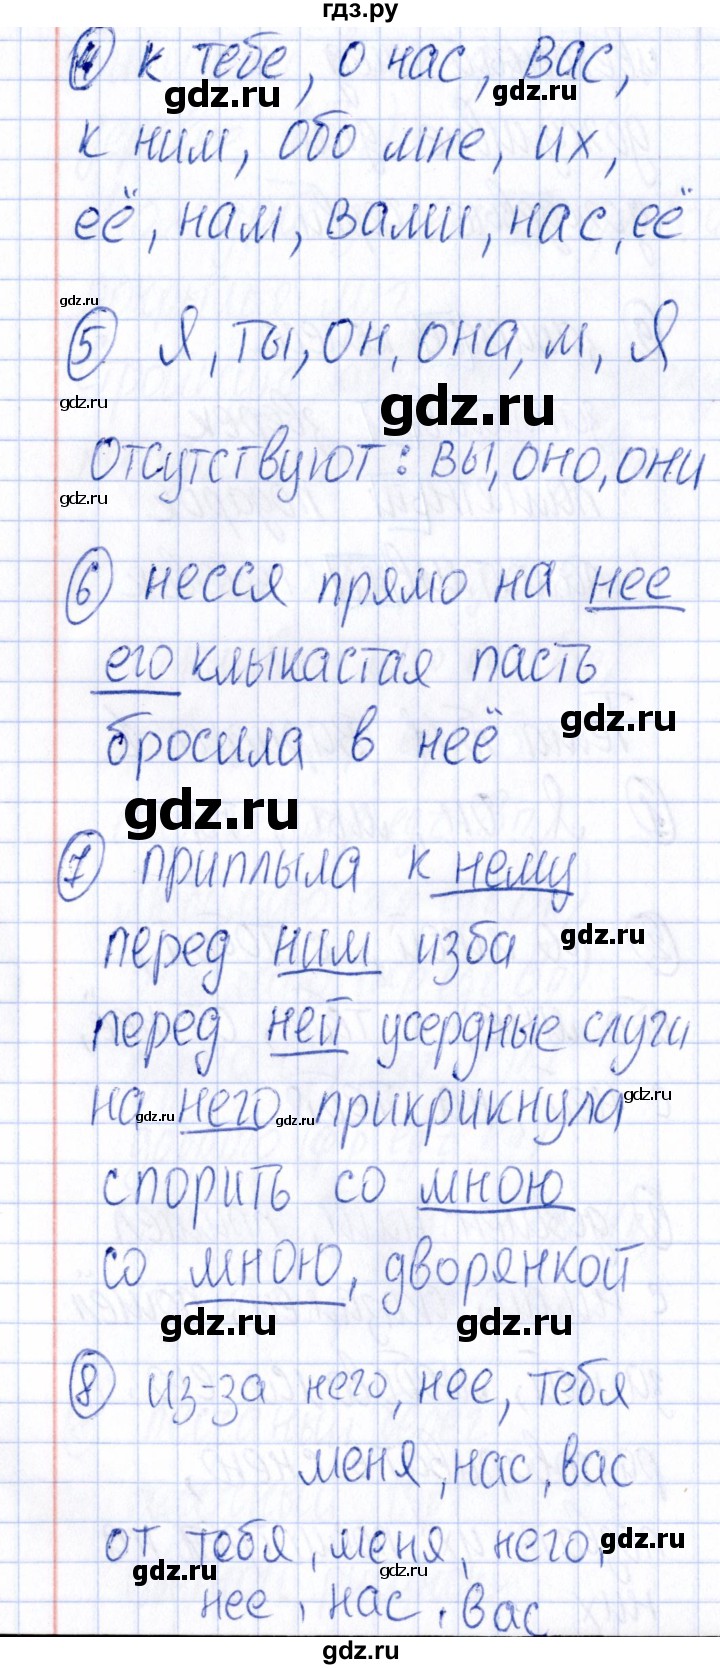 гдз.ру
④ к тебе, о нас, Вас,
gdz.ru gdz.ru
к ним, обо мне, их,
её, нам, Вами, нас, её
gdz.ru
⑤ Я, ты, он, она, м, Я
gdz.ru gdz.ru
Отсутствуют: вы, оно, они
gdz.ru
⑥ несся прямо на нее
его клыкастая пасть
gdz.ru
бросила в неё
gdz.ru
⑦ приплыла к нему
перед ним изба
gdz.ru
перед ней усердные слуги
на него прикрикнула
gdz.ru gdz.ru gdz.ru
спорить со мною
со мною, дворянкой
gdz.ru gdz.ru
⑧ из-за него, нее, тебя
меня, нас, вас
от тебя, меня, него,
gdz.ru gdz.ru gdz.ru
нее, нас, вас
gdz.ru